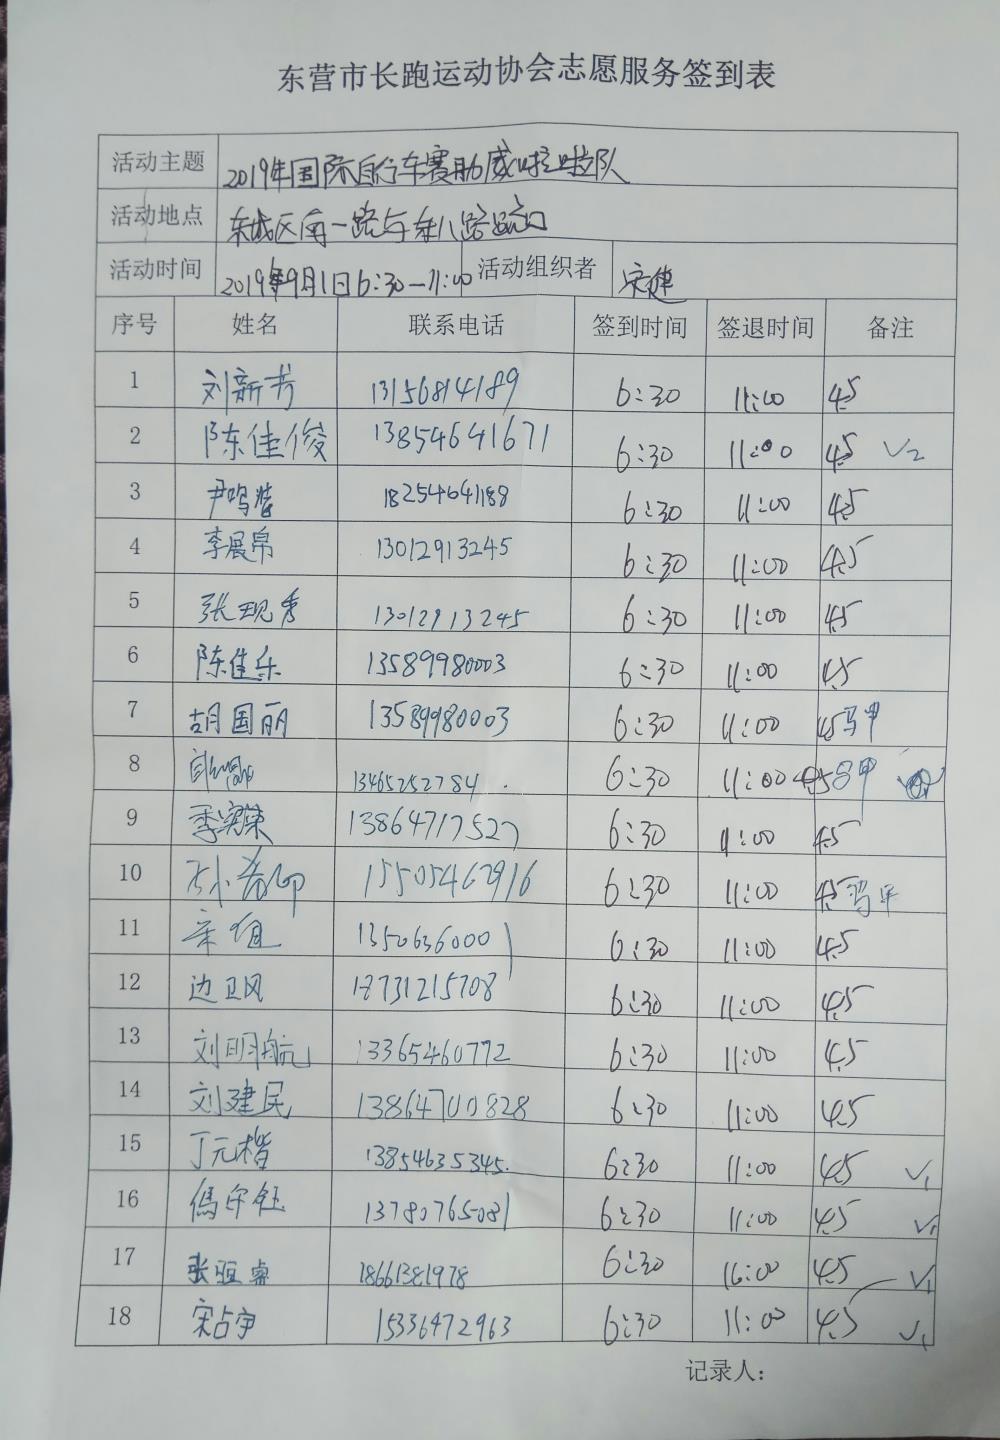 东营市长跑运动协会志愿服务签到表
活动主题 2019年国际自行车赛助威啦啦队
活动地点 东城区南一路与东八路路口
活动时间 2019年9月1日6:30—11:00 活动组织者 宋健
序号 姓名 联系电话 签到时间 签退时间 备注
1 刘新芳 13156814189 6:30 11:00 4.5
2 陈佳俊 13854641671 6:30 11:00 4.5 √2
3 尹鸣 18254641188 6:30 11:00 4.5
4 李展帛 13012913245 6:30 11:00 4.5
5 张现秀 13012913245 6:30 11:00 4.5
6 陈佳乐 13589980003 6:30 11:00 4.5
7 胡国丽 13589980003 6:30 11:00 4.5 马甲
8 13465252784 6:30 11:00 4.5 马甲
9 季荣 13864717527 6:30 11:00 4.5
10 15505462916 6:30 11:00 4.5 马甲
11 13506360001 6:30 11:00 4.5
12 边卫风 18731215708 6:30 11:00 4.5
13 刘明航 13365460772 6:30 11:00 4.5
14 刘建民 13864700828 6:30 11:00 4.5
15 丁元楷 13854635345 6:30 11:00 4.5 √1
16 傌守钰 13780765081 6:30 11:00 4.5 √1
17 张恒睿 18661381978 6:30 16:00 4.5 √1
18 宋占宇 15336472963 6:30 11:00 4.5 √1
记录人：